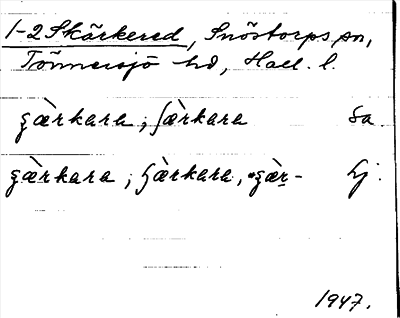 1-2 Skärkered, Snöstorps sn,
Tönnersjö hd, Hall. l.
ʂæ̀rkara; ʃærkara Sa.
ʂæ̀rkara; ʂæ̀rkara, *ʂæ̀r- Lj.
1947.